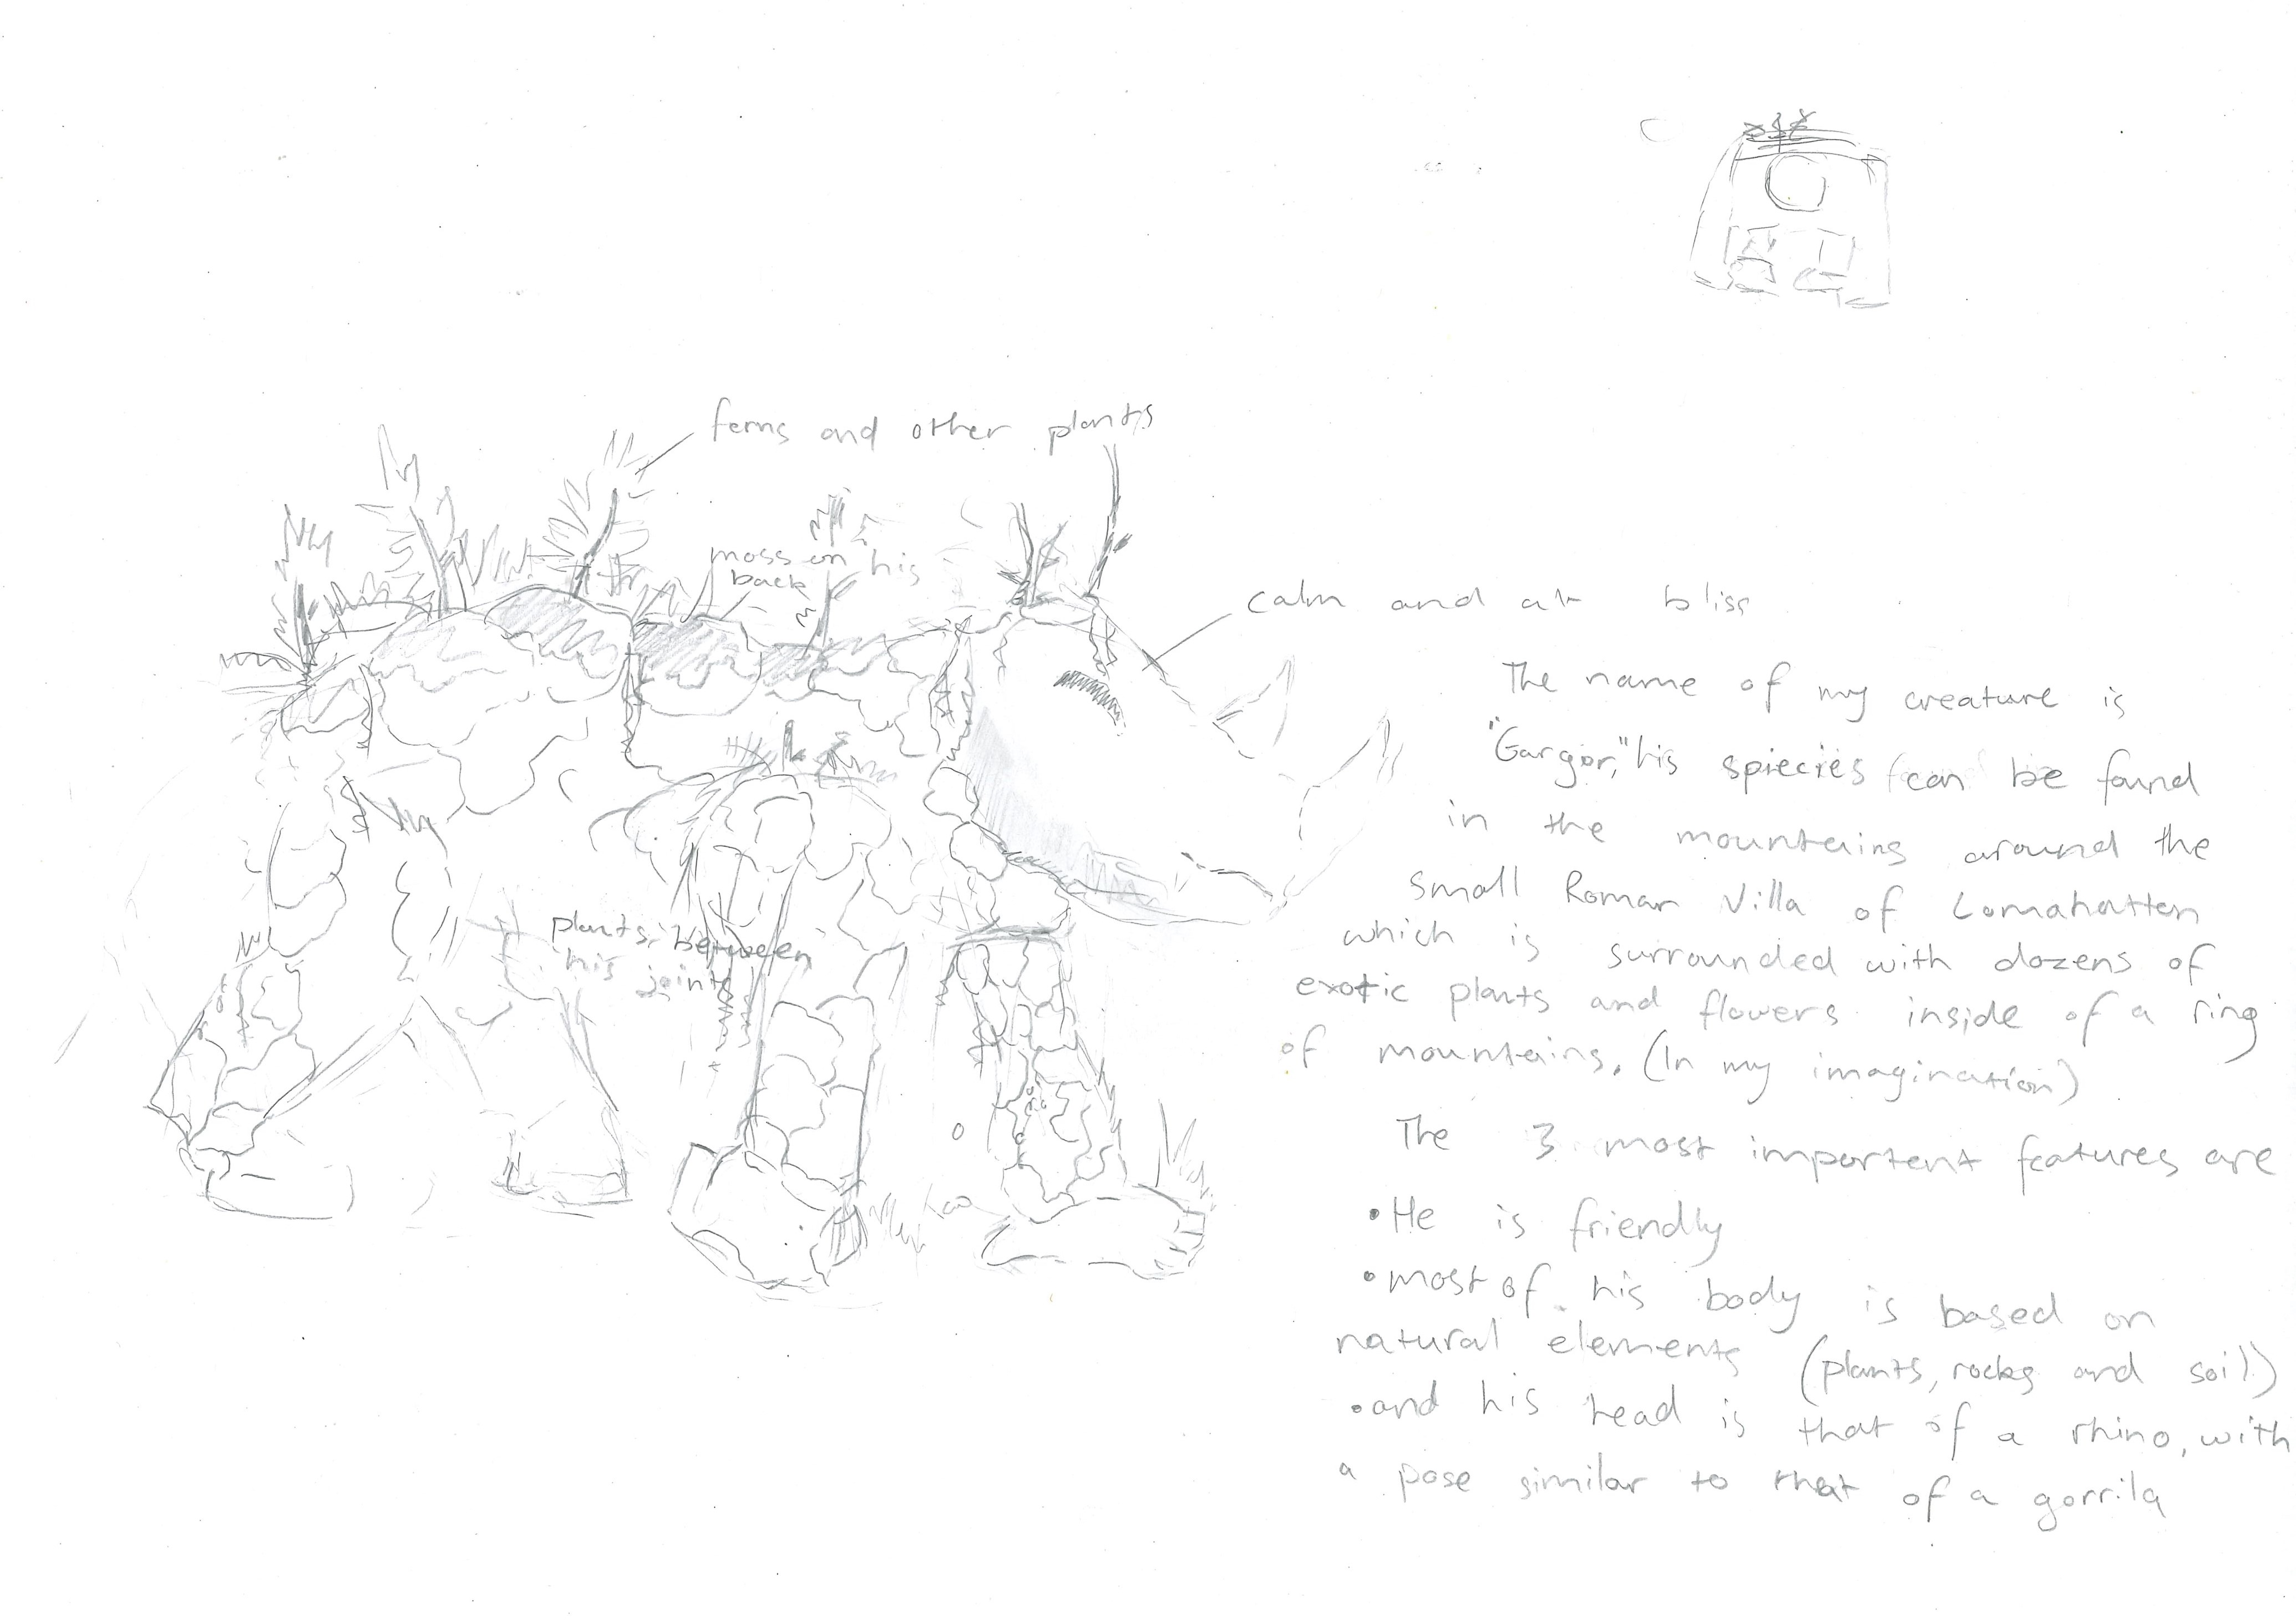 ferns and other plants
moss on his
back
calm and at bliss
plants between
his joints
The name of my creature is
"Gargor," his spiecies can be found
in the mountains around the
small Roman Villa of Lomahatten
which is surrounded with dozens of
exotic plants and flowers inside of a ring
of mountains. (In my imagination)
The 3 most importent features are
•He is friendly
•most of his body is based on
natural elements (plants, rocks and soil)
•and his head is that of a rhino, with
a pose similar to that of a gorrila